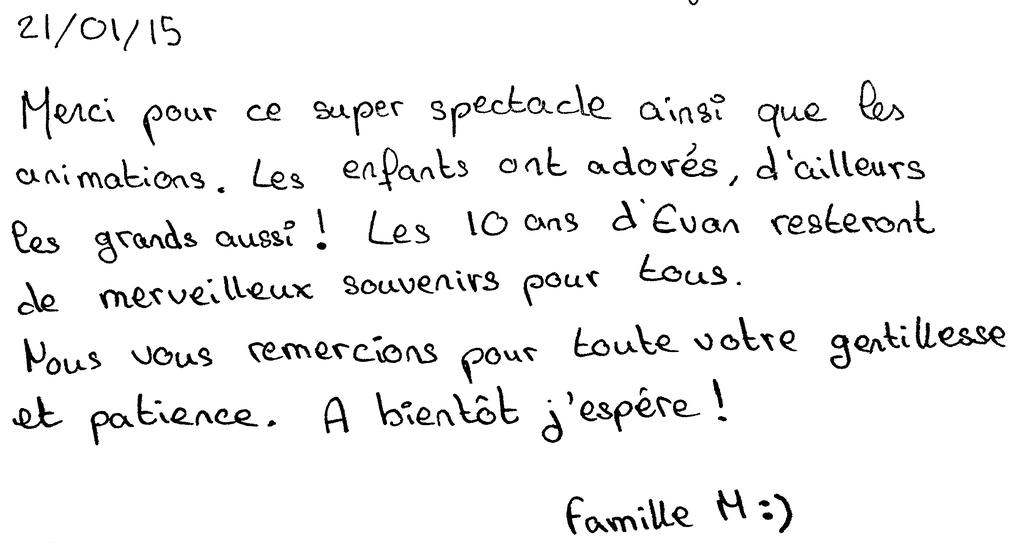 21/01/15
Merci pour ce super spectacle ainsi que les
animations. Les enfants ont adorés, d'ailleurs
les grands aussi ! Les 10 ans d'Evan resteront
de merveilleux souvenirs pour tous.
Nous vous remercions pour toute votre gentillesse
et patience. A bientôt j'espére !
famille M :)